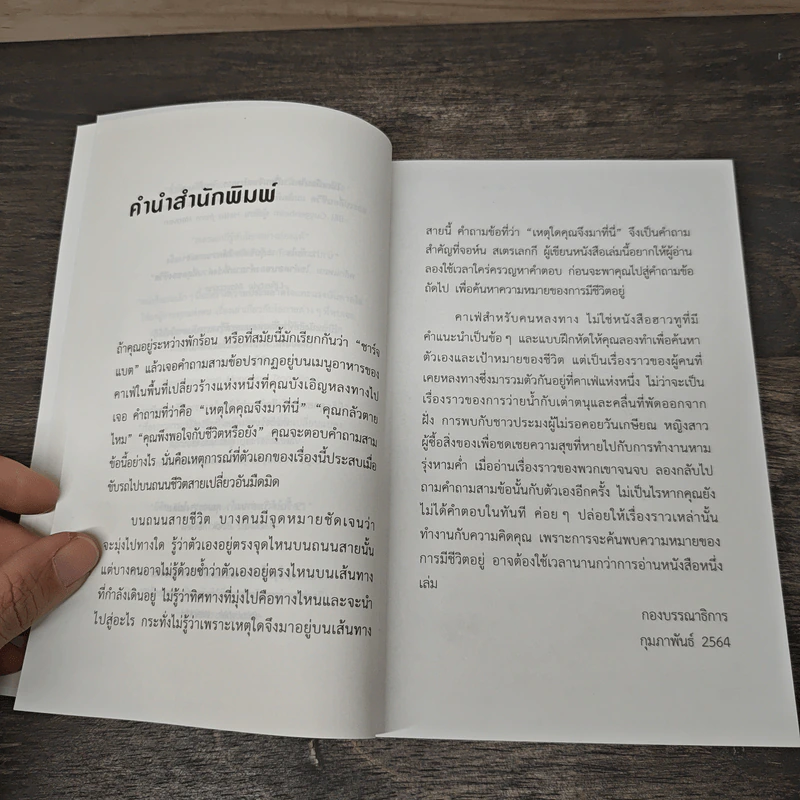 คำนำสำนักพิมพ์
ถ้าคุณอยู่ระหว่างพักร้อน หรือที่สมัยนี้มักเรียกกันว่า “ชาร์จ
แบต” แล้วเจอคำถามสามข้อปรากฏอยู่บนเมนูอาหารของ
คาเฟ่ในพื้นที่เปลี่ยวร้างแห่งหนึ่งที่คุณบังเอิญหลงทางไป
เจอ คำถามที่ว่าคือ “เหตุใดคุณจึงมาที่นี่” “คุณกลัวตาย
ไหม” “คุณพึงพอใจกับชีวิตหรือยัง” คุณจะตอบคำถามสาม
ข้อนี้อย่างไร นั่นคือเหตุการณ์ที่ตัวเอกของเรื่องนี้ประสบเมื่อ
ขับรถไปบนถนนชีวิตสายเปลี่ยวอันมืดมิด
บนถนนสายชีวิต บางคนมีจุดหมายชัดเจนว่า
จะมุ่งไปทางใด รู้ว่าตัวเองอยู่ตรงจุดไหนบนถนนสายนั้น
แต่บางคนอาจไม่รู้ด้วยซ้ำว่าตัวเองอยู่ตรงไหนบนเส้นทาง
ที่กำลังเดินอยู่ ไม่รู้ว่าทิศทางที่มุ่งไปคือทางไหนและจะนำ
ไปสู่อะไร กระทั่งไม่รู้ว่าเพราะเหตุใดจึงมาอยู่บนเส้นทาง
สายนี้ คำถามข้อที่ว่า “เหตุใดคุณจึงมาที่นี่” จึงเป็นคำถาม
สำคัญที่จอห์น สเตรเลกกี ผู้เขียนหนังสือเล่มนี้อยากให้ผู้อ่าน
ลองใช้เวลาใคร่ครวญหาคำตอบ ก่อนจะพาคุณไปสู่คำถามข้อ
ถัดไป เพื่อค้นหาความหมายของการมีชีวิตอยู่
คาเฟ่สำหรับคนหลงทาง ไม่ใช่หนังสือฮาวทูที่มี
คำแนะนำเป็นข้อๆ และแบบฝึกหัดให้คุณลองทำเพื่อค้นหา
ตัวเองและเป้าหมายของชีวิต แต่เป็นเรื่องราวของผู้คนที่
เคยหลงทางซึ่งมารวมตัวกันอยู่ที่คาเฟ่แห่งหนึ่ง ไม่ว่าจะเป็น
เรื่องราวของการว่ายน้ำกับเต่าตนุและคลื่นที่พัดออกจาก
ฝั่ง การพบกับชาวประมงผู้ไม่รอคอยวันเกษียณ หญิงสาว
ผู้ซื้อสิ่งของเพื่อชดเชยความสุขที่หายไปกับการทำงานหาม
รุ่งหามค่ำ เมื่ออ่านเรื่องราวของพวกเขาจนจบ ลองกลับไป
ถามคำถามสามข้อนั้นกับตัวเองอีกครั้ง ไม่เป็นไรหากคุณยัง
ไม่ได้คำตอบในทันที ค่อยๆ ปล่อยให้เรื่องราวเหล่านั้น
ทำงานกับความคิดคุณ เพราะการจะค้นพบความหมายของ
การมีชีวิตอยู่ อาจต้องใช้เวลานานกว่าการอ่านหนังสือหนึ่ง
เล่ม
กองบรรณาธิการ
กุมภาพันธ์ 2564